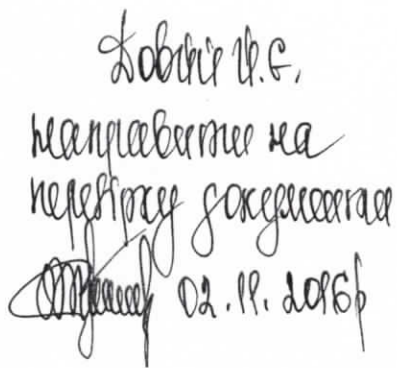 Довгій І.Є.
направити на
перевірку документи
02.11.2016р